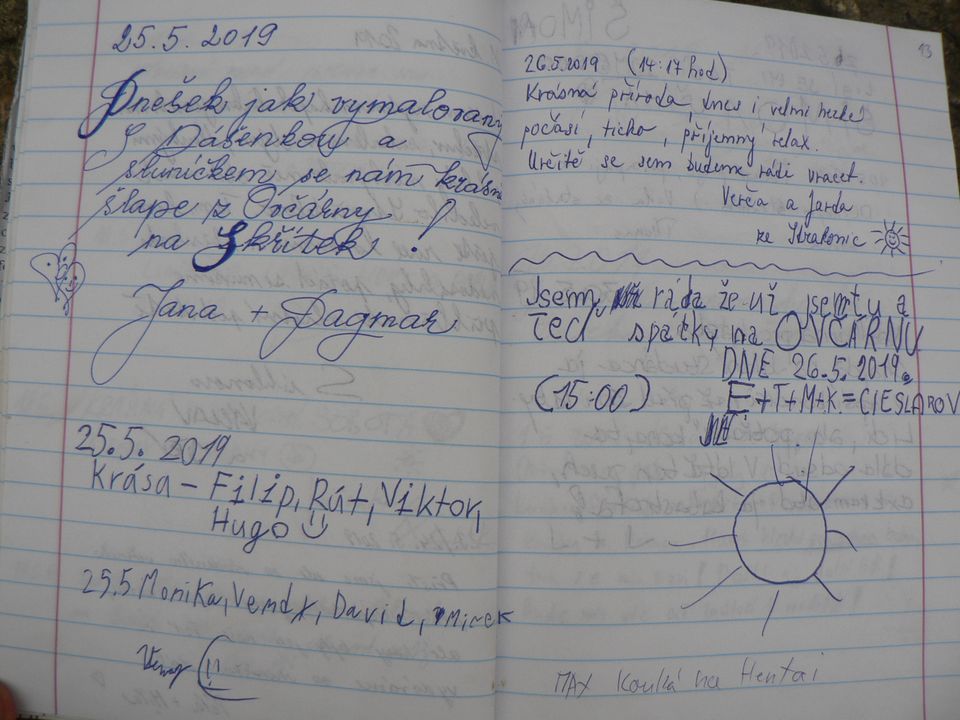 25.5.2019
Dnešek jak vymalovaný
S Dášenkou a
sluníčkem se nám krásně
šlape z Ovčárny
na Skřítek!
Jana + Dagmar
25.5. 2019
Krása - Filip, Rút, Viktor,
Hugo
25.5 Monika, Vendy, David, Mirek
13
26.5.2019 (14:17 hod)
Krásná příroda, dnes i velmi hezké
počasí, ticho, příjemný relax.
Určitě se sem budeme rádi vracet.
Verča a Jarda
ze Strakonic
Jsem ráda že už jsem tu a
teď spátky na OVČÁRNU
DNE 26.5.2019.
(15:00) E+T+M+K=CIESLAROVI
MAX kouká na Hentai